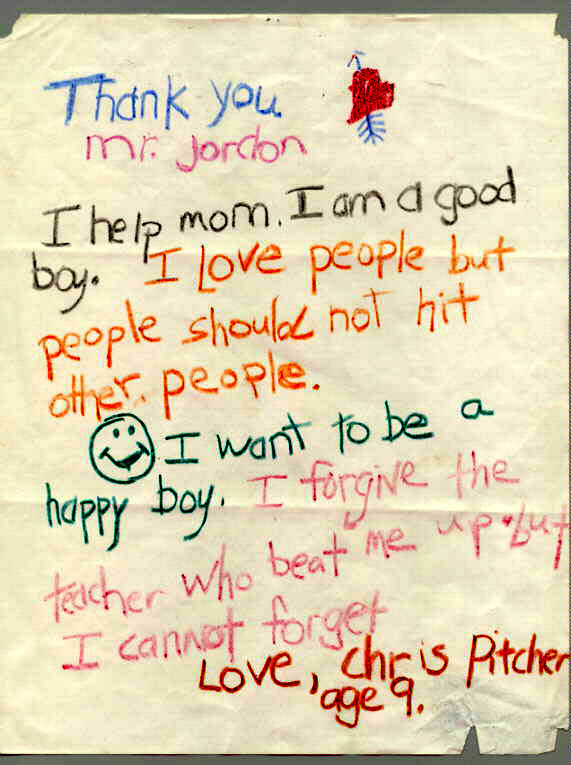 Thank you
mr. jordon
I help mom. I am a good
boy. I Love people but
people should not hit
other. people.
I want to be a
happy boy. I forgive the
teacher who beat me up. but
I cannot forget
Love, chris Pitcher
age 9.